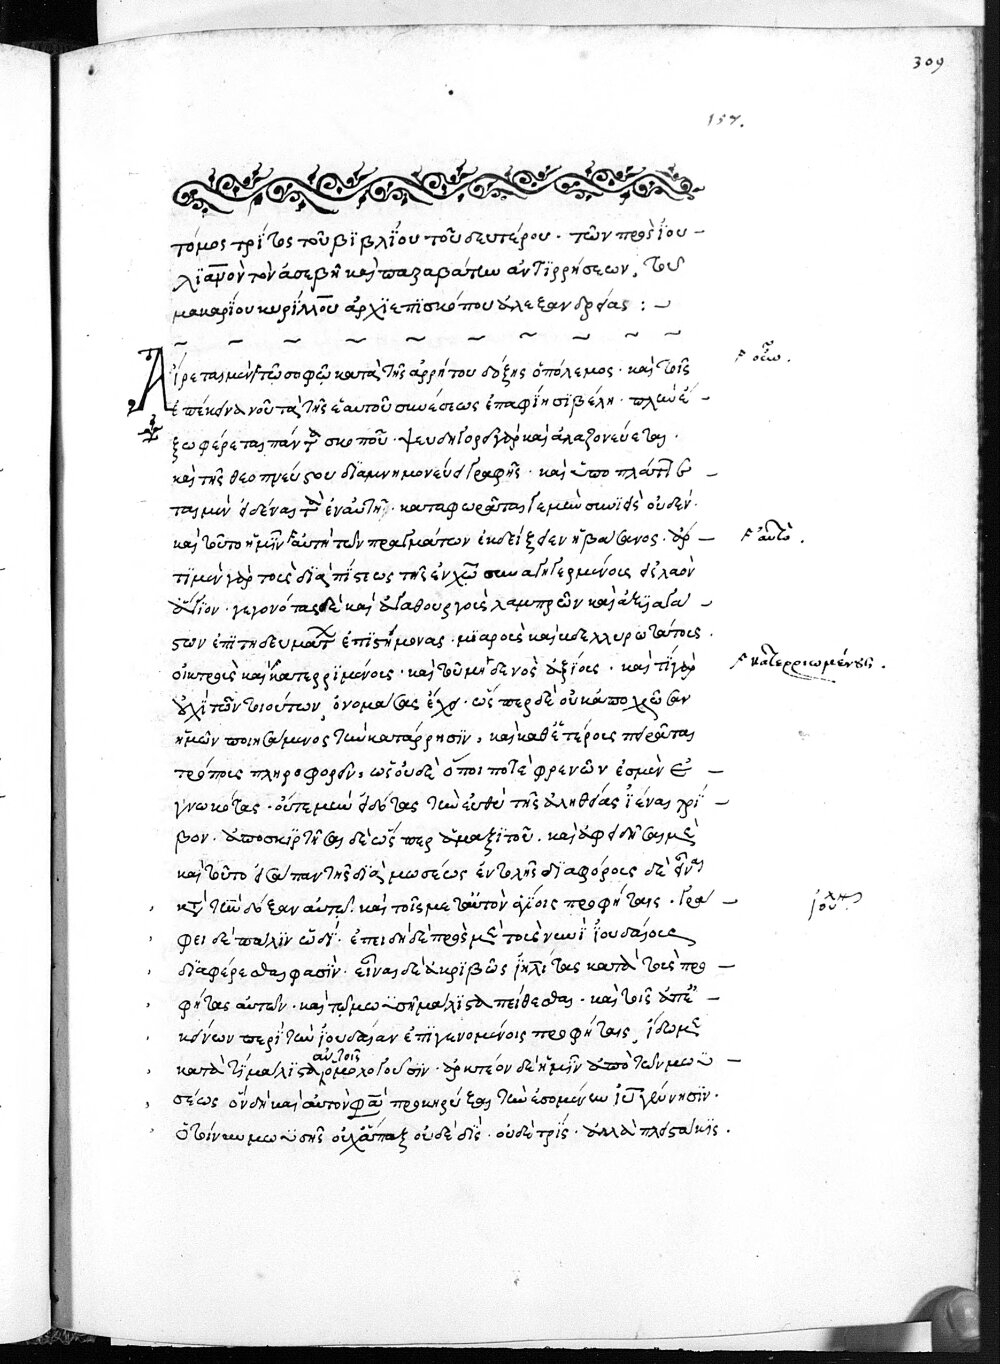 309
157.
τόμος τρίτος τοῦ βιβλίου τοῦ δευτέρου· τῶν πρὸς ἰου
λϊανὸν τὸν ἀσεβῆ καὶ παραβάτην ἀντϊρρήσεων, τοῦ
μακαρίου κυρίλλου ἀρχϊεπϊσκόπου ἀλεξανδρείας :
Αἴρεται μὲν τῶ σοφῶ κατὰ τῆς ἀρρήτου δόξης ὁ πόλεμος· καὶ τοῖς
ἐπέκεινα νοῦ τὰ τῆς ἑαυτοῦ συνέσεως ἐπαφίησϊ βέλη· πλὴν ἔ
ξω φέρεται παντὸς σκοποῦ· ψευδηγορεῖ γὰρ καὶ ἀλαζονεύεται·
καὶ τῆς θεοπνεύστου διαμνημονεύει γραφῆς· καὶ ὑποπλάττε
ται μὲν εἰδέναι τὰ ἐν αὐτῆ· καταφωρᾶται γεμὴν συνϊεὶς οὐδέν·
καὶ τοῦτο ἡμῖν αὐτὴ τῶν πραγμάτων ἐκδείξειεν ἡ βάσανος·
τϊ μὲν γὰρ τοῖς διὰ πίστεως τῆς ἐν χῶ συναγηγερμένοις εἰς λαὸν
ἅγϊον· γεγονότας δὲ καὶ ἀγαθουργοῖς λαμπρῶν καὶ ἀξϊαγά
στων ἐπϊτηδευμάτων ἐπϊστήμονας· μϊαροῖς καὶ βδελλυρωτάτοις·
οἰκτροῖς καὶ κατερρϊμένοις· καὶ τοῦ μηδενὸς ἀξίοις· καὶ τί γὰρ
οὐχὶ τῶν τοιούτων, ὀνομάσας ἔχει· ὥσπερ δὲ οὐκ ἀποχρῶσαν
ἡμῶν ποιησάμενος τὴν κατάρρησϊν, καὶ καθ' ἑτέροις πειρᾶται
τρόποις πληροφορεῖν, ὡς οὐδὲ ὅποι ποτὲ φρενῶν ἐσμὲν ἐ
γνωκότας· οὔτε μὴν εἰδότας τὴν εὐθὺ τῆς ἀληθείας ἰέναι τρί
βον· ἀποσκϊρτῆσαι δὲ ὥσπερ ἁμαξιτοῦ· καὶ ἀφειδῆσαι μὲν
καὶ τοῦτο εἰσάπαν τῆς διὰ μωσέως ἐντολῆς διαφόροις δὲ εἶναι
κατὰ τὴν δόξαν αὐτῶ· καὶ τοῖς μετ' αὐτὸν ἁγίοις προφήταις· γρά
φει δὲ πάλϊν ὡδί· ἐπειδὴ δὲ πρὸς μὲν τοὺς νυνὶ ἰουδαίους
διαφέρεσθαι φασϊν· εἶναι δὲ ἀκρϊβῶς ἰηλῖται κατὰ τοὺς προ
φήτας αὐτῶν· καὶ τῶ μωϋσῆ μάλϊστα πείθεσθαι· καὶ τοῖς ἀπ' ἐ
κείνων περὶ τὴν ἰουδαίαν ἐπϊγενομένοις προφήταις, ἴδωμεν
κατὰ τί μάλϊστα αὐτοῖς ὁμολογοῦσϊν· ἀρκτέον δὲ ἡμῖν ἀπὸ τῶν μωϋ
σέως ὃν δὴ καὶ αὐτὸν φασὶ προκηρύξαι τὴν ἐσομένην ἰῦ γέννησϊν·
ὁ τοίνυν μωϋσῆς οὐχ ἅπαξ οὐδὲ δίς· οὐδὲ τρίς· ἀλλὰ πλειστάκϊς.
αὐτὸ.
κατερριωμένοις.